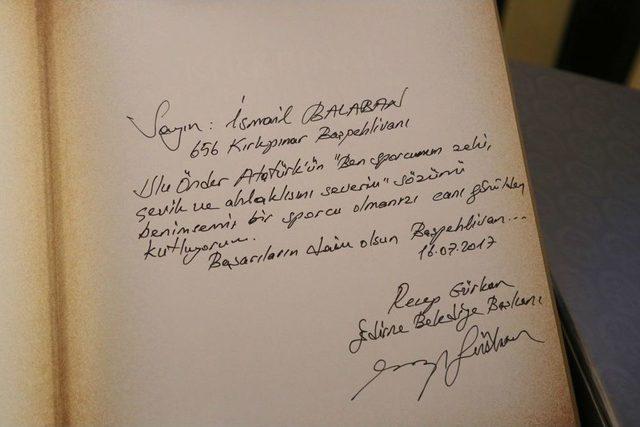 Sayın: İsmail BALABAN
656 Kırkpınar Başpehlivanı
Ulu Önder Atatürk'ün "Ben sporcunun zeki,
çevik ve ahlaklısını severim" sözünü
benimsemiş bir sporcu olmanızı canı gönülden
kutluyorum.
Başarıların daim olsun Başpehlivan...
16.07.2017
Recep Gürkan
Edirne Belediye Başkanı